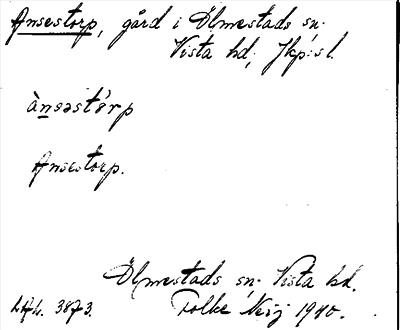 Ansestorp, gård i Ölmestads sn.
Vista hd, Jkp:s l.
ànsəstȯ́rp
Ansestorp.
Ölmestads sn. Vista hd.
3873. Folke Neij 1940.